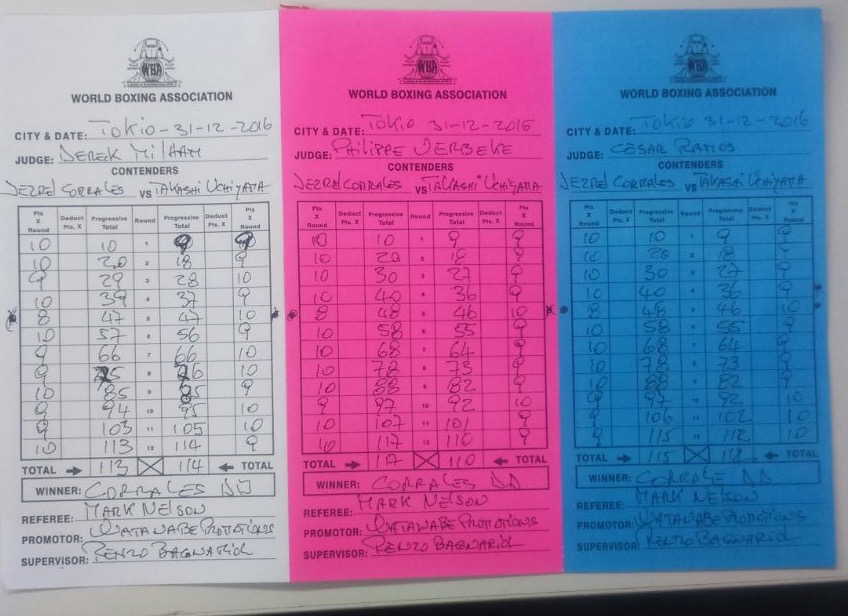 WBA
WORLD BOXING ASSOCIATION
CITY & DATE: TOKIO-31-12-2016
JUDGE: DEREK MILHAM
CONTENDERS
JEZREL CORRALES VS TAKASHI UCHIYAMA
Pts X Round Deduct Pts. X Progressive Total Round Progressive Total Deduct Pts. X Pts X Round
10 10 1 9 9
10 20 2 18 9
9 29 3 28 10
10 39 4 37 9
8 47 5 47 10
10 57 6 56 9
9 66 7 66 10
9 75 8 76 10
10 85 9 85 9
9 94 10 95 10
9 103 11 105 10
10 113 12 114 9
TOTAL 113 114 TOTAL
WINNER: CORRALES
REFEREE: MARK NELSON
PROMOTOR: WATANABE PROMOTIONS
SUPERVISOR: RENZO BAGNARIOL
WBA
WORLD BOXING ASSOCIATION
CITY & DATE: TOKIO 31-12-2016
JUDGE: PHILIPPE VERBEKE
CONTENDERS
JEZREL CORRALES VS TAKASHI UCHIYAMA
Pts X Round Deduct Pts. X Progressive Total Round Progressive Total Deduct Pts. X Pts X Round
10 10 1 9 9
10 20 2 18 9
10 30 3 27 9
10 40 4 36 9
8 48 5 46 10
10 58 6 55 9
10 68 7 64 9
10 78 8 73 9
10 88 9 82 9
9 97 10 92 10
10 107 11 101 9
10 117 12 110 9
TOTAL 117 110 TOTAL
WINNER: CORRALES
REFEREE: MARK NELSON
PROMOTOR: WATANABE PROMOTIONS
SUPERVISOR: RENZO BAGNARIOL
WBA
WORLD BOXING ASSOCIATION
CITY & DATE: TOKIO 31-12-2016
JUDGE: CESAR RAMOS
CONTENDERS
JEZREL CORRALES VS TAKASHI UCHIYAMA
Pts X Round Deduct Pts. X Progressive Total Round Progressive Total Deduct Pts. X Pts X Round
10 10 1 9 9
10 20 2 18 9
10 30 3 27 9
10 40 4 36 9
8 48 5 46 10
10 58 6 55 9
10 68 7 64 9
10 78 8 73 9
10 88 9 82 9
9 97 10 92 10
9 106 11 102 10
9 115 12 112 10
TOTAL 115 112 TOTAL
WINNER:
REFEREE: MARK NELSON
PROMOTOR: WATANABE PROMOTIONS
SUPERVISOR: RENZO BAGNARIOL